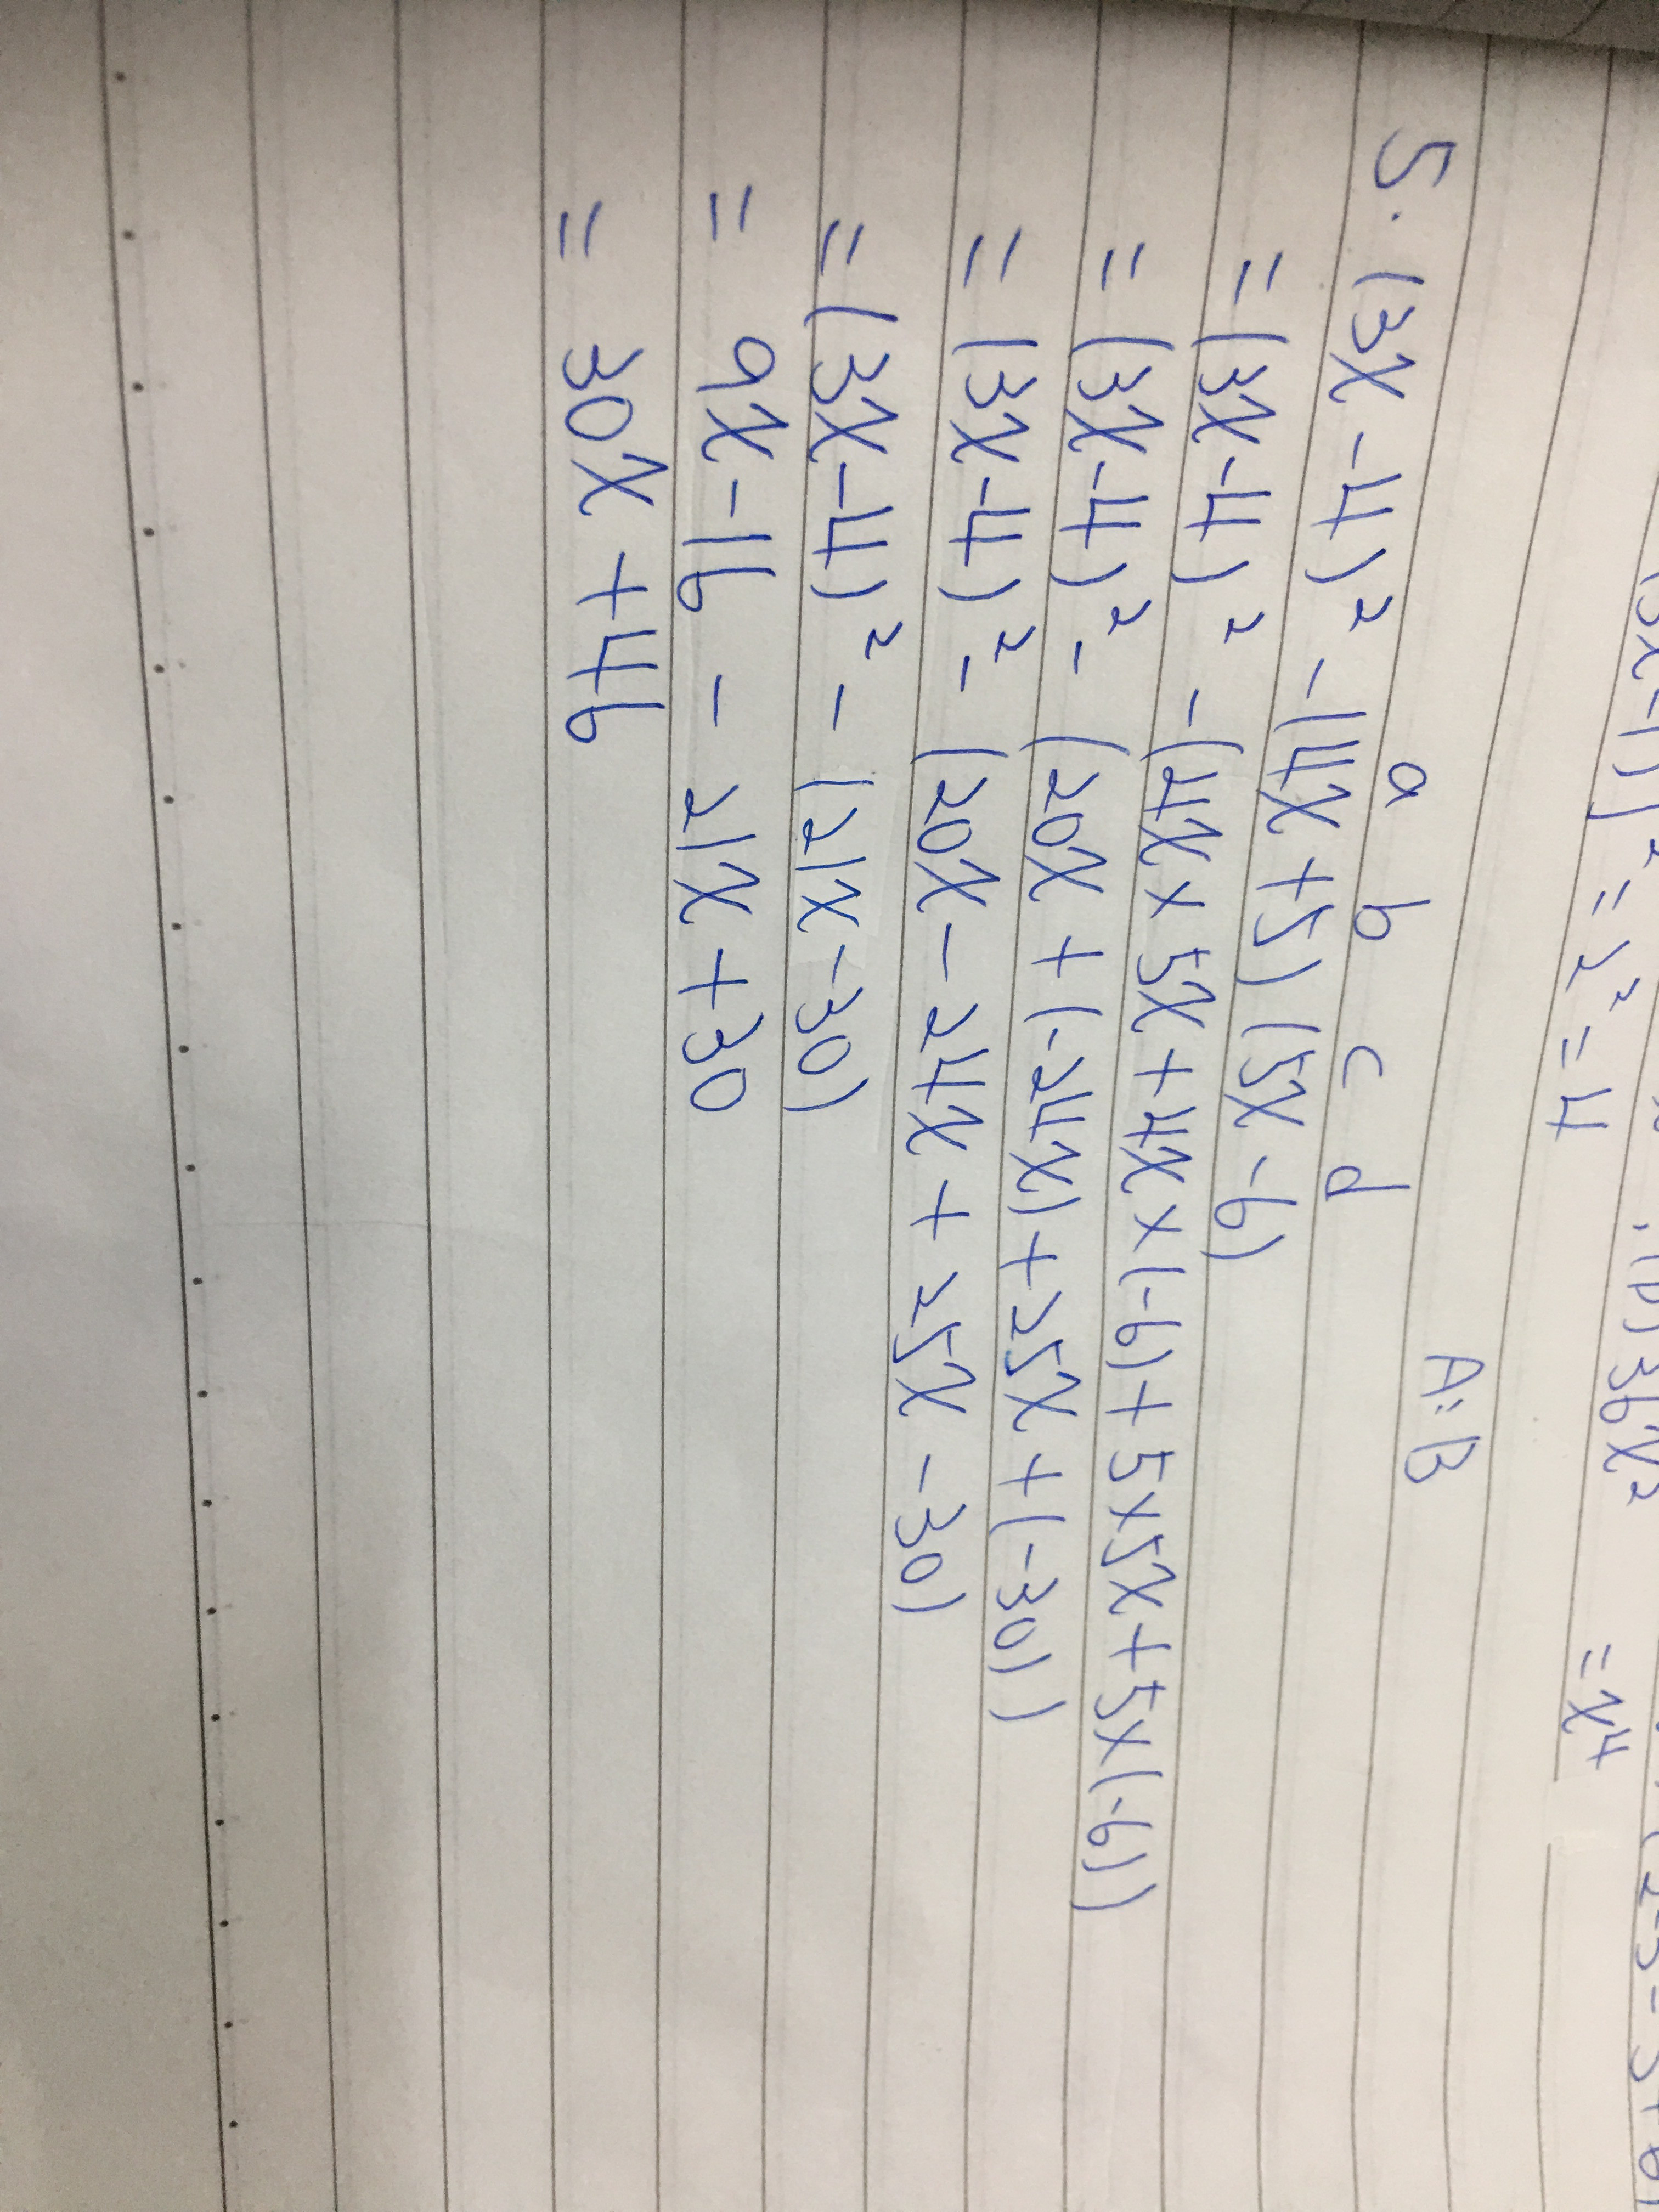 (3x-1)]² = 2² = 4
(b) 36x²
= x⁴
A:B
a b c d
5. (3x-4)² -(4x+5)(5x-6)
=(3x-4)² -(4x × 5x + 4x × (-6) + 5 × 5x + 5 × (-6))
= (3x-4)² - (20x + (-24x) + 25x + (-30))
= (3x-4)² - (20x - 24x + 25x - 30)
= (3x-4)² - (21x-30)
= 9x-16 - 21x +30
= 30x +46